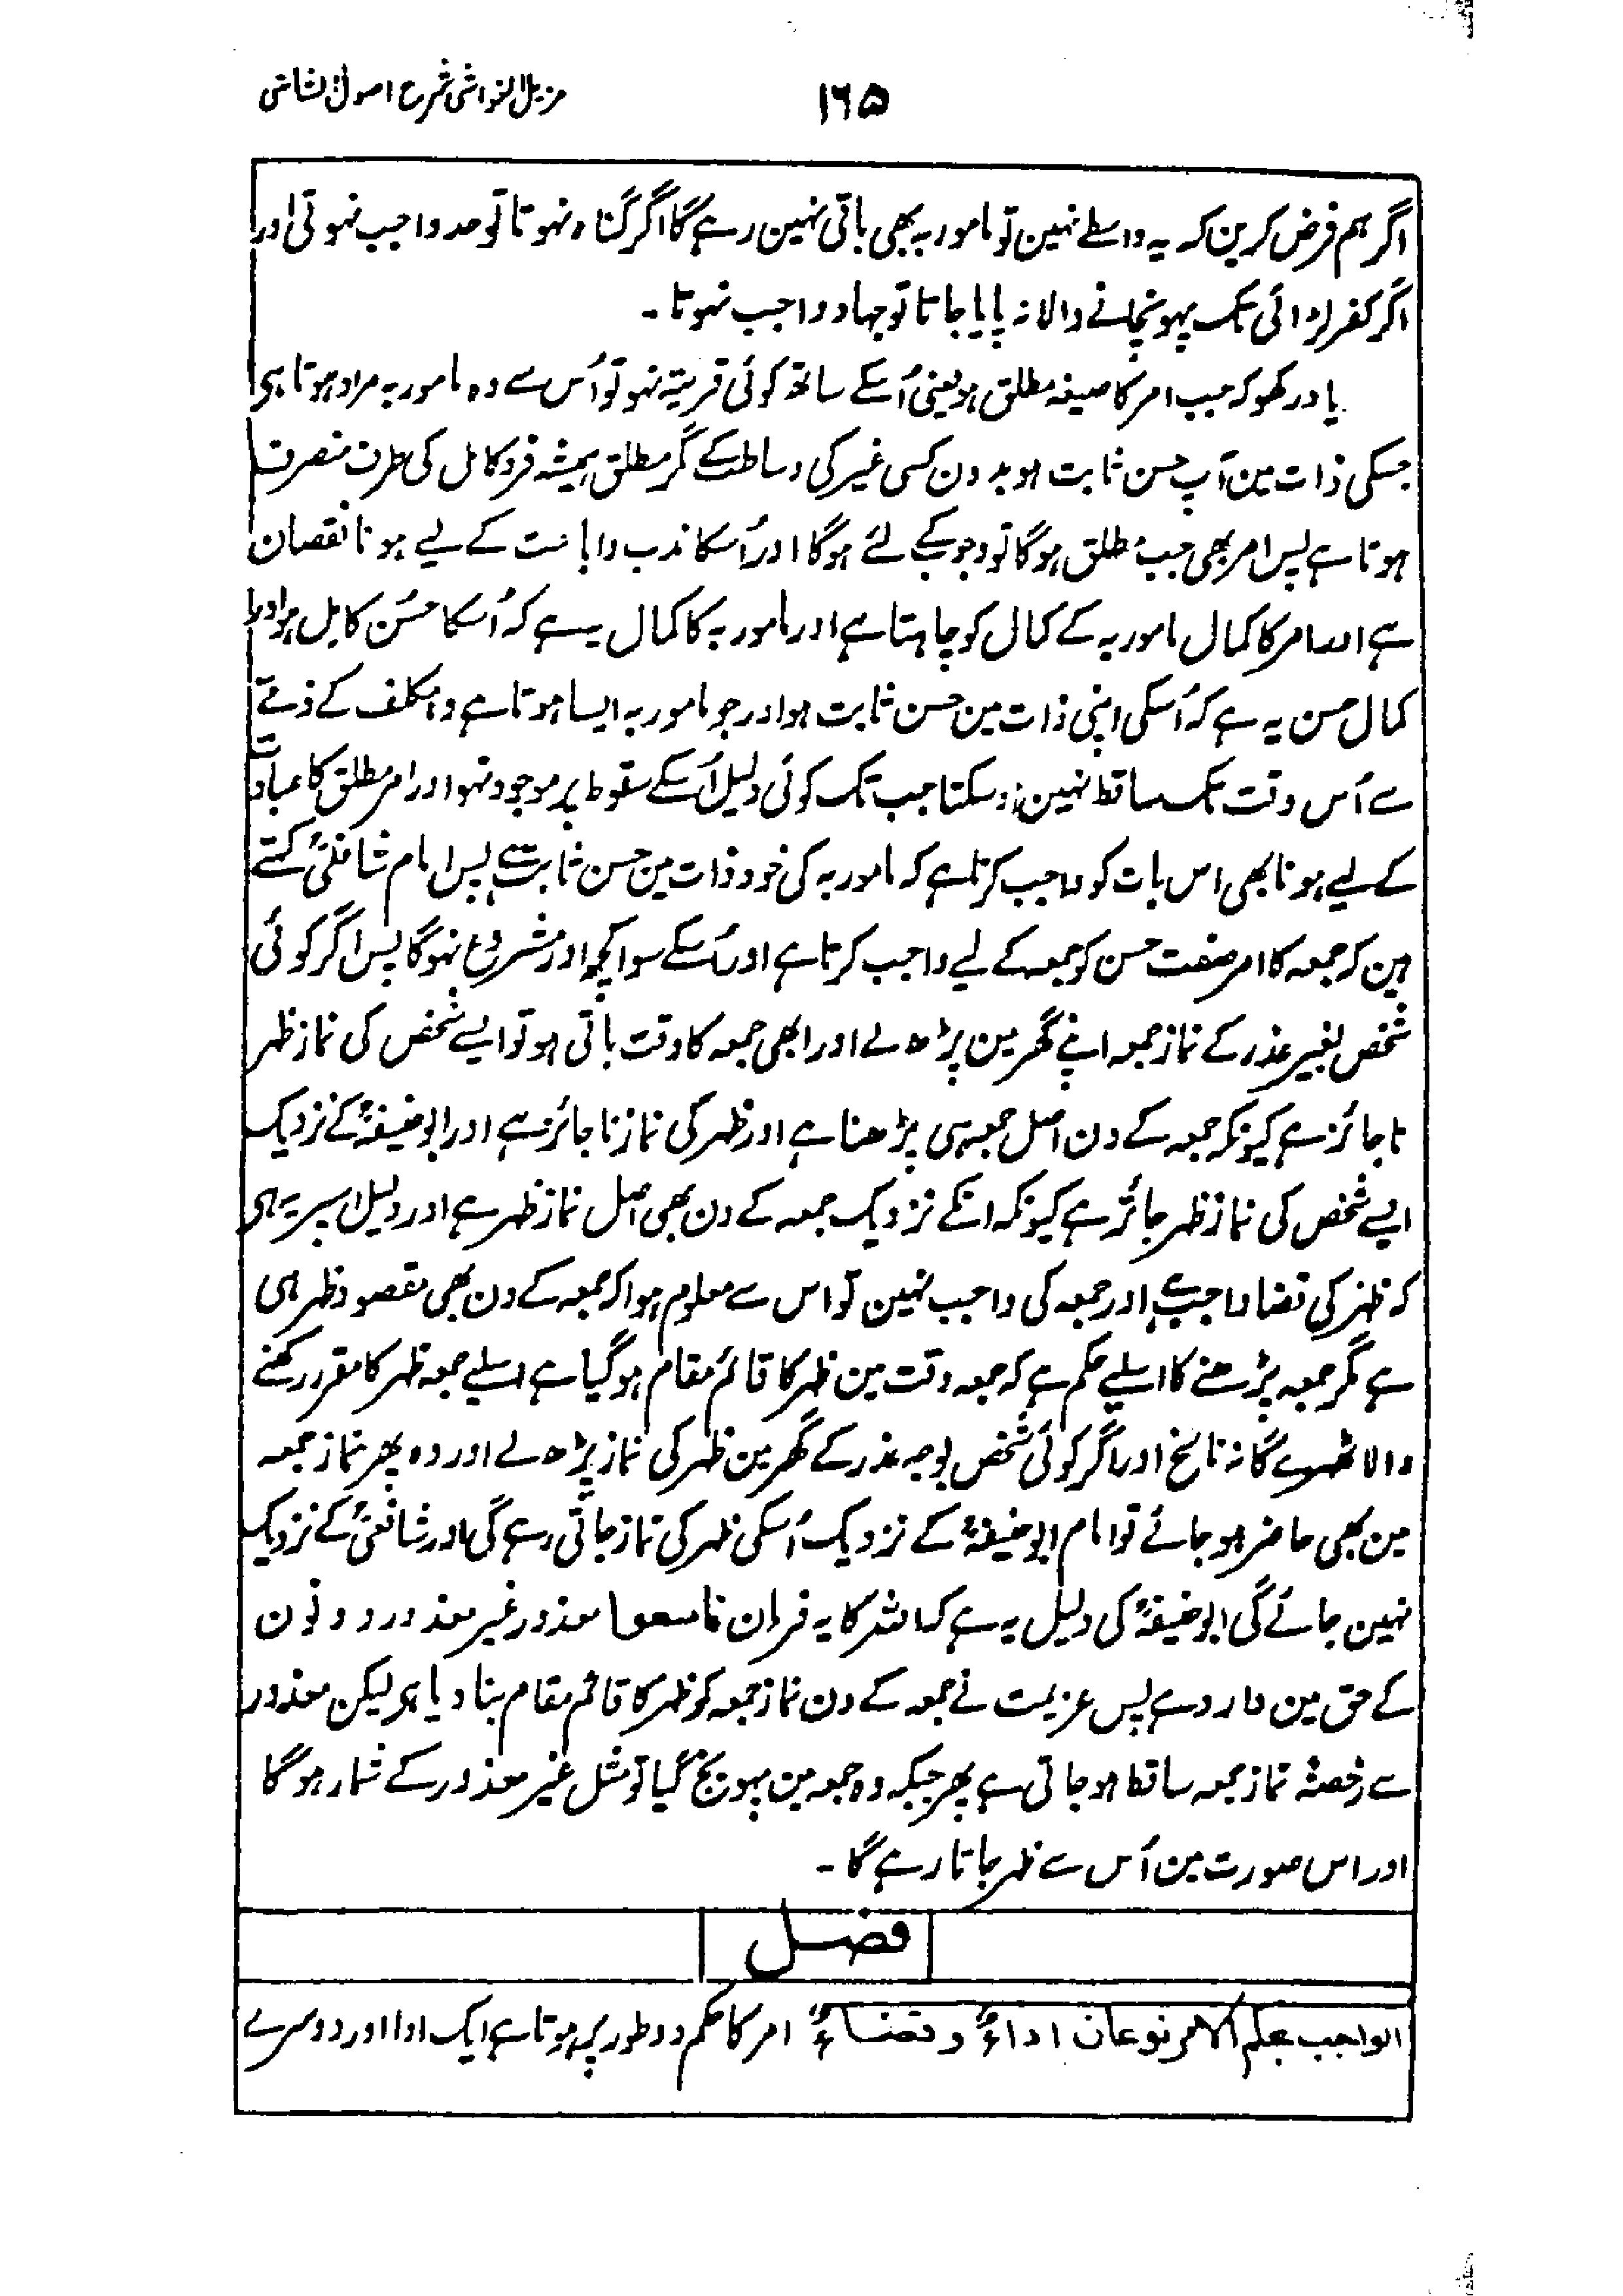 مزیل الغواشی شرح اصول الشاشی
۱۶۵
اگر ہم فرض کرین کہ یہ واسطے نہین تو مامور بہ بھی باقی نہین رہے گا اگر گناہ نہوتا تو حد واجب نہوتی اور
اگر کفر لڑائی تک پہونچانے والا نہ پایا جاتا تو جہاد واجب نہوتا ۔
یاد رکھو کہ جب امر کا صیغہ مطلق ہو یعنی اُسکے ساتھ کوئی قرینہ نہو تو اُس سے وہ مامور بہ مراد ہوتا ہی
جسکی ذات مین آپ حسن ثابت ہو بدون کسی غیر کی وساطت کے مگر مطلق ہمیشہ فرد کامل کی طرف منصرف
ہوتا ہے پس امر بھی جب مطلق ہوگا تو وجوب کے لئے ہوگا اور اُسکا ندب و اباحت کے لیے ہونا نقصان
ہے اور امر کا کمال مامور بہ کے کمال کو چاہتا ہے اور مامور بہ کا کمال یہ ہے کہ اُسکا حسُن کامل ہو اور
کمال حسن یہ ہے کہ اُسکی اپنی ذات مین حسن ثابت ہو اور جو مامور بہ ایسا ہوتا ہے وہ مکلف کے ذمّے
سے اُس وقت تک ساقط نہین ہو سکتا جب تک کوئی دلیل اُسکے سقوط پر موجود نہو اور امر مطلق کا عبادت
کے لیے ہونا بھی اس بات کو واجب کرتا ہے کہ مامور بہ کی خود ذات مین حسن ثابت ہے پس امام شافعیؒ کہتے
ہین کہ جمعہ کا امر صفت حسن کو جمعہ کے لیے واجب کرتا ہے اور اُسکے سوا کچھ اور مشروع نہوگا پس اگر کوئی
شخص بغیر عذر کے نماز جمعہ اپنے گھر مین پڑھ لے اور ابھی جمعہ کا وقت باقی ہو تو ایسے شخص کی نماز ظہر
ناجائز ہے کیونکہ جمعہ کے دن اصل جمعہ ہی پڑھنا ہے اور ظہر کی نماز ناجائز ہے اور ابو حنیفہؒ کے نزدیک
ایسے شخص کی نماز ظہر جائز ہے کیونکہ انکے نزدیک جمعہ کے دن بھی اصل نماز ظہر ہے اور دلیل اسپر یہ ہی
کہ ظہر کی قضا واجب ہے اور جمعہ کی واجب نہین تو اس سے معلوم ہوا کہ جمعہ کے دن بھی مقصود ظہر ہی
ہے مگر جمعہ پڑھنے کا اسلیے حکم ہے کہ جمعہ وقت مین ظہر کا قائم مقام ہو گیا ہے اسلیے جمعہ ظہر کا مقرر رکھنے
والا ٹھہرے گا نہ ناسخ اور اگر کوئی شخص بوجہ عذر کے گھر مین ظہر کی نماز پڑھ لے اور وہ پھر نماز جمعہ
مین بھی حاضر ہو جائے تو امام ابو حنیفہؒ کے نزدیک اُسکی ظہر کی نماز جاتی رہے گی اور شافعیؒ کے نزدیک
نہین جائے گی ابو حنیفہؒ کی دلیل یہ ہے کہ اللہ کا یہ فرمان فاسعوا معذور غیر معذور دونون
کے حق مین وارد ہے پس عزیمت نے جمعہ کے دن نماز جمعہ کو ظہر کا قائم مقام بنا دیا ہی لیکن معذور
سے رخصۃً نماز جمعہ ساقط ہو جاتی ہے پھر جبکہ وہ جمعہ مین پہونچ گیا تو مثل غیر معذور کے شمار ہوگا
اور اس صورت مین اُس سے ظہر جاتا رہے گا ۔
فصل
الواجب بحکم الامر نوعان اداءٌ و قضاءٌ امر کا حکم دو طور پر ہوتا ہے ایک ادا اور دوسرے